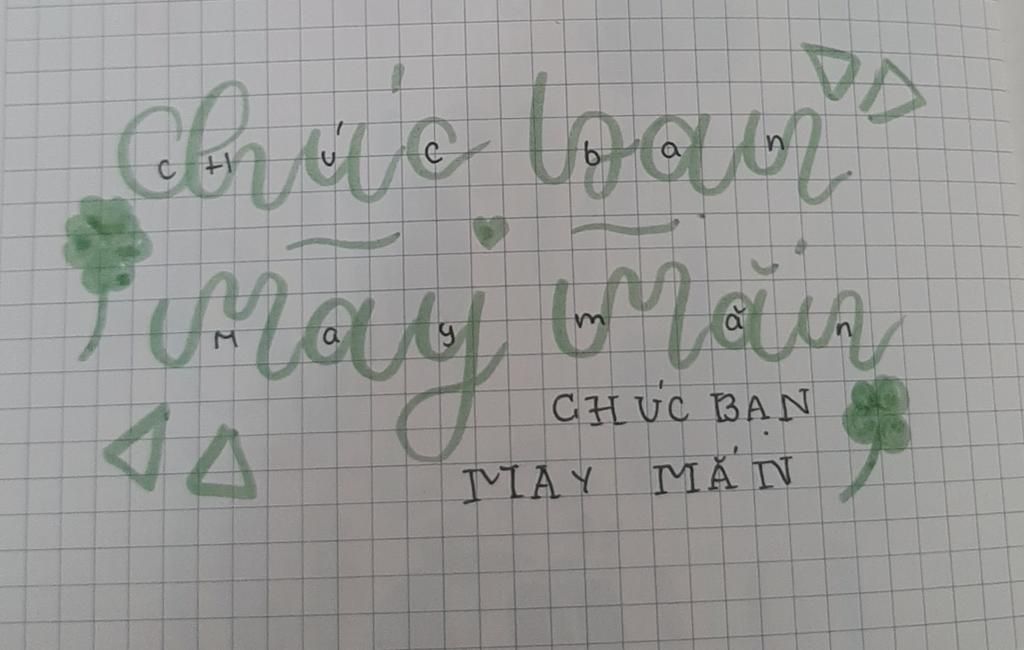 Chúc bạn
may mắn
CHÚC BẠN
MAY MẮN